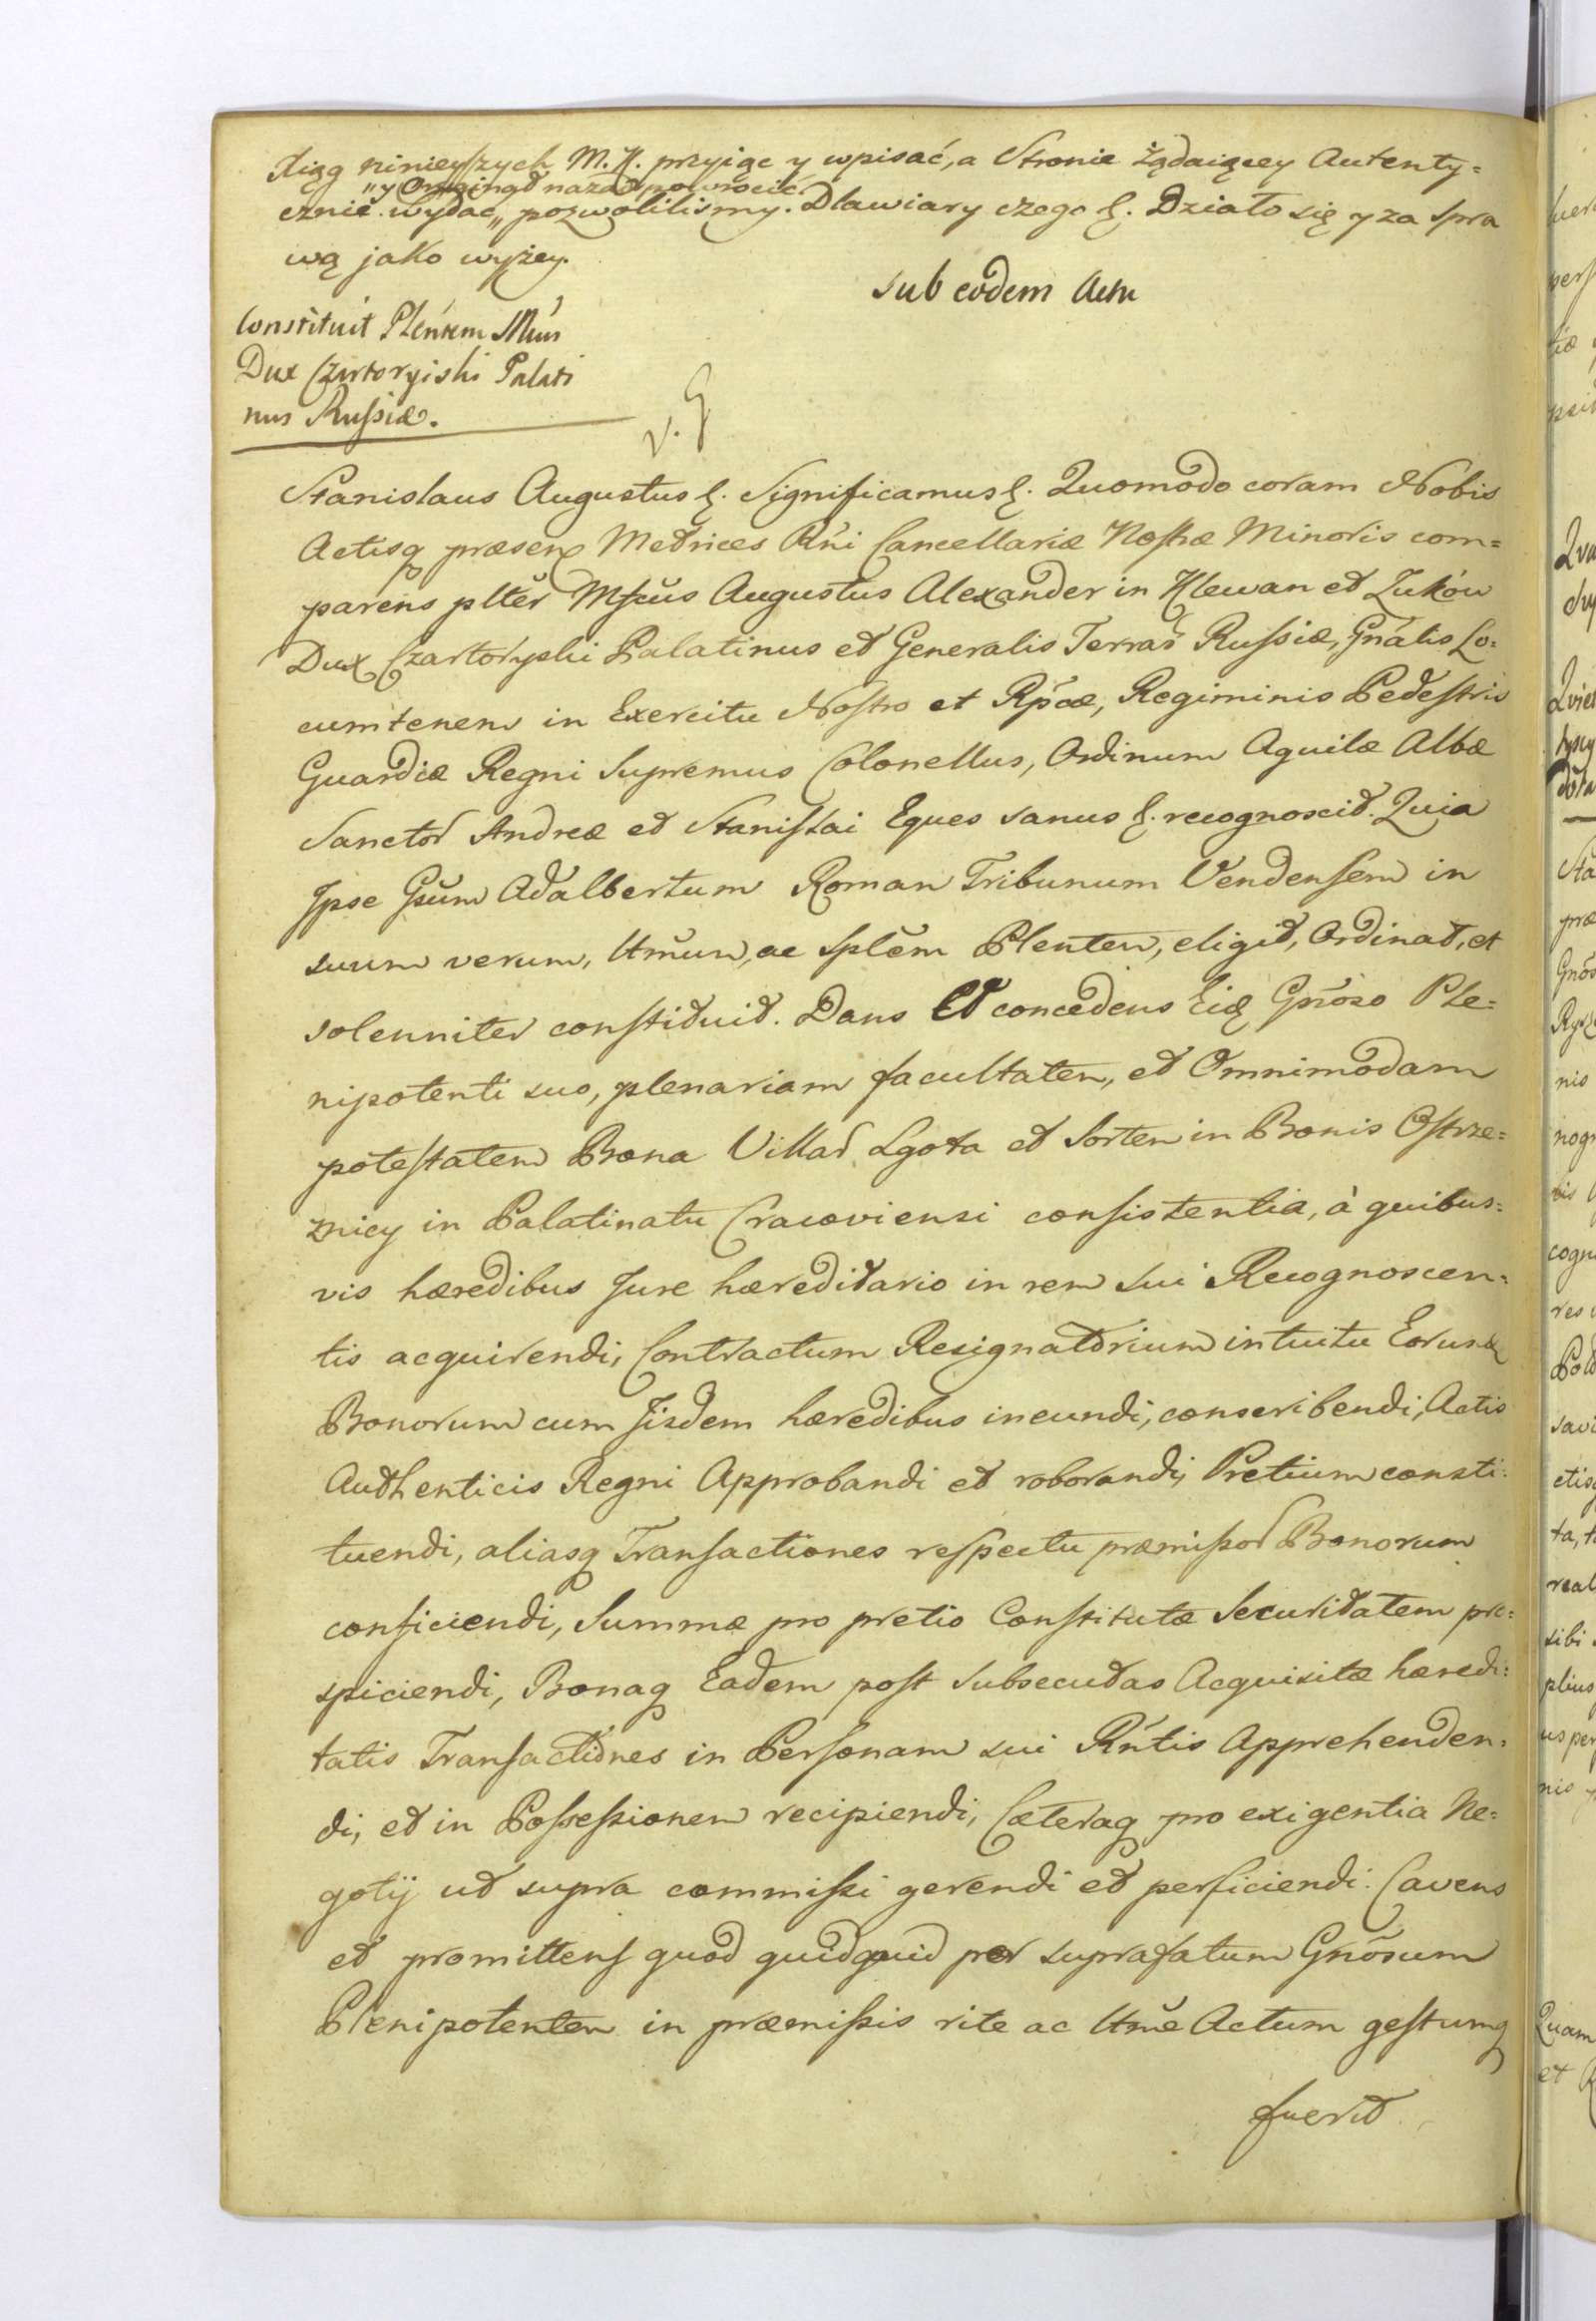 Xiąg ninieyszych M. K. przyiąc y wpisać, a Stronie żądaiącey Autenty=
„y Oryginał nazad powrocić
cznie wydac „ pozwolilismy. Dla wiary czego &. Działo się y za spra
wą jako wyżey.
sub eodem Actu
Constituit Plentem Mcus
Dux Czartoryiski Palati
nus Russiæ.
Stanislaus Augustus &. Significamus &. Quomodo coram Nobis
Actisq præsen Metrices Rni Cancellariæ Nostræ Minoris com=
parens plter Mfcus Augustus Alexander in Klewan et Zuków
Dux Czartoryski Palatinus et Generalis Terrar Russiæ, Gnalis Lo=
cumtenens in Exercitu Nostro et Rpcæ, Regiminis Pedestris
Guardiæ Regni Supremus Colonellus, Ordinum Aquilæ Albæ
Sanctor Andreæ et Stanislai Eques sanus &. recognoscit. Quia
Ipse Gsum Adalbertum Roman Tribunum Vendensem in
suum verum, ltmum, ac splem Plenten, eligit, Ordinat, et
solenniter constituit. Dans Et concedens Eidq Gnoso Ple=
nipotenti suo, plenariam facultatem, et Omnimodam
potestatem Bona Villar Lgota et Sortem in Bonis Ostrze=
znicy in Palatinatu Cracoviensi consistentia, à quibus=
vis hæredibus Jure hæreditario in rem sui Recognoscen=
tis acquirendi, Contractum Resignatorium intuitu Eorund
Bonorum cum Jisdem hæredibus ineundi, conscribendi, Actis
Authenticis Regni Approbandi et roborandi, Pretium consti=
tuendi, aliasq Transactiones respectu præmissor Bonorum
conficiendi, Summæ pro pretio Constitutæ Securitatem pro=
spiciendi, Bonaq Eadem post subsecutas Acquisitæ hæredi=
tatis Transactiones in Personam sui Rntis Apprehenden=
di, et in Possessionem recipiendi, Cæteraq pro exigentia Ne=
gotij ut supra commissi gerendi et perficiendi. Cavens
et promittens quod quidquid per suprafatum Gnosum
Plenipotentem in præmissis rite ac ltme Actum gestumq
fuerit